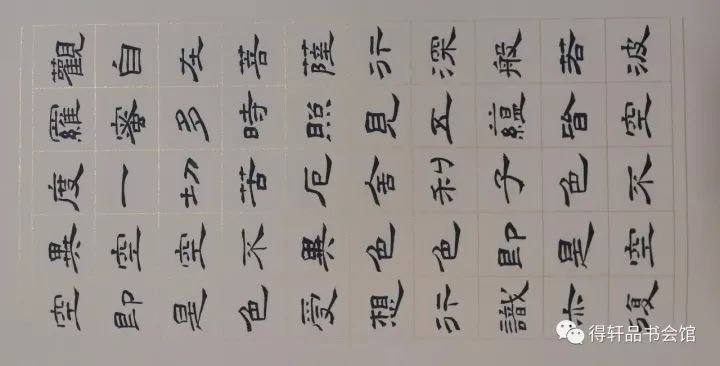 觀自在菩薩行深般若波
羅蜜多時照見五蘊皆空
度一切苦厄舍利子色不
異空空不異色色即是空
空即是色受想行識亦復
得轩品书会馆